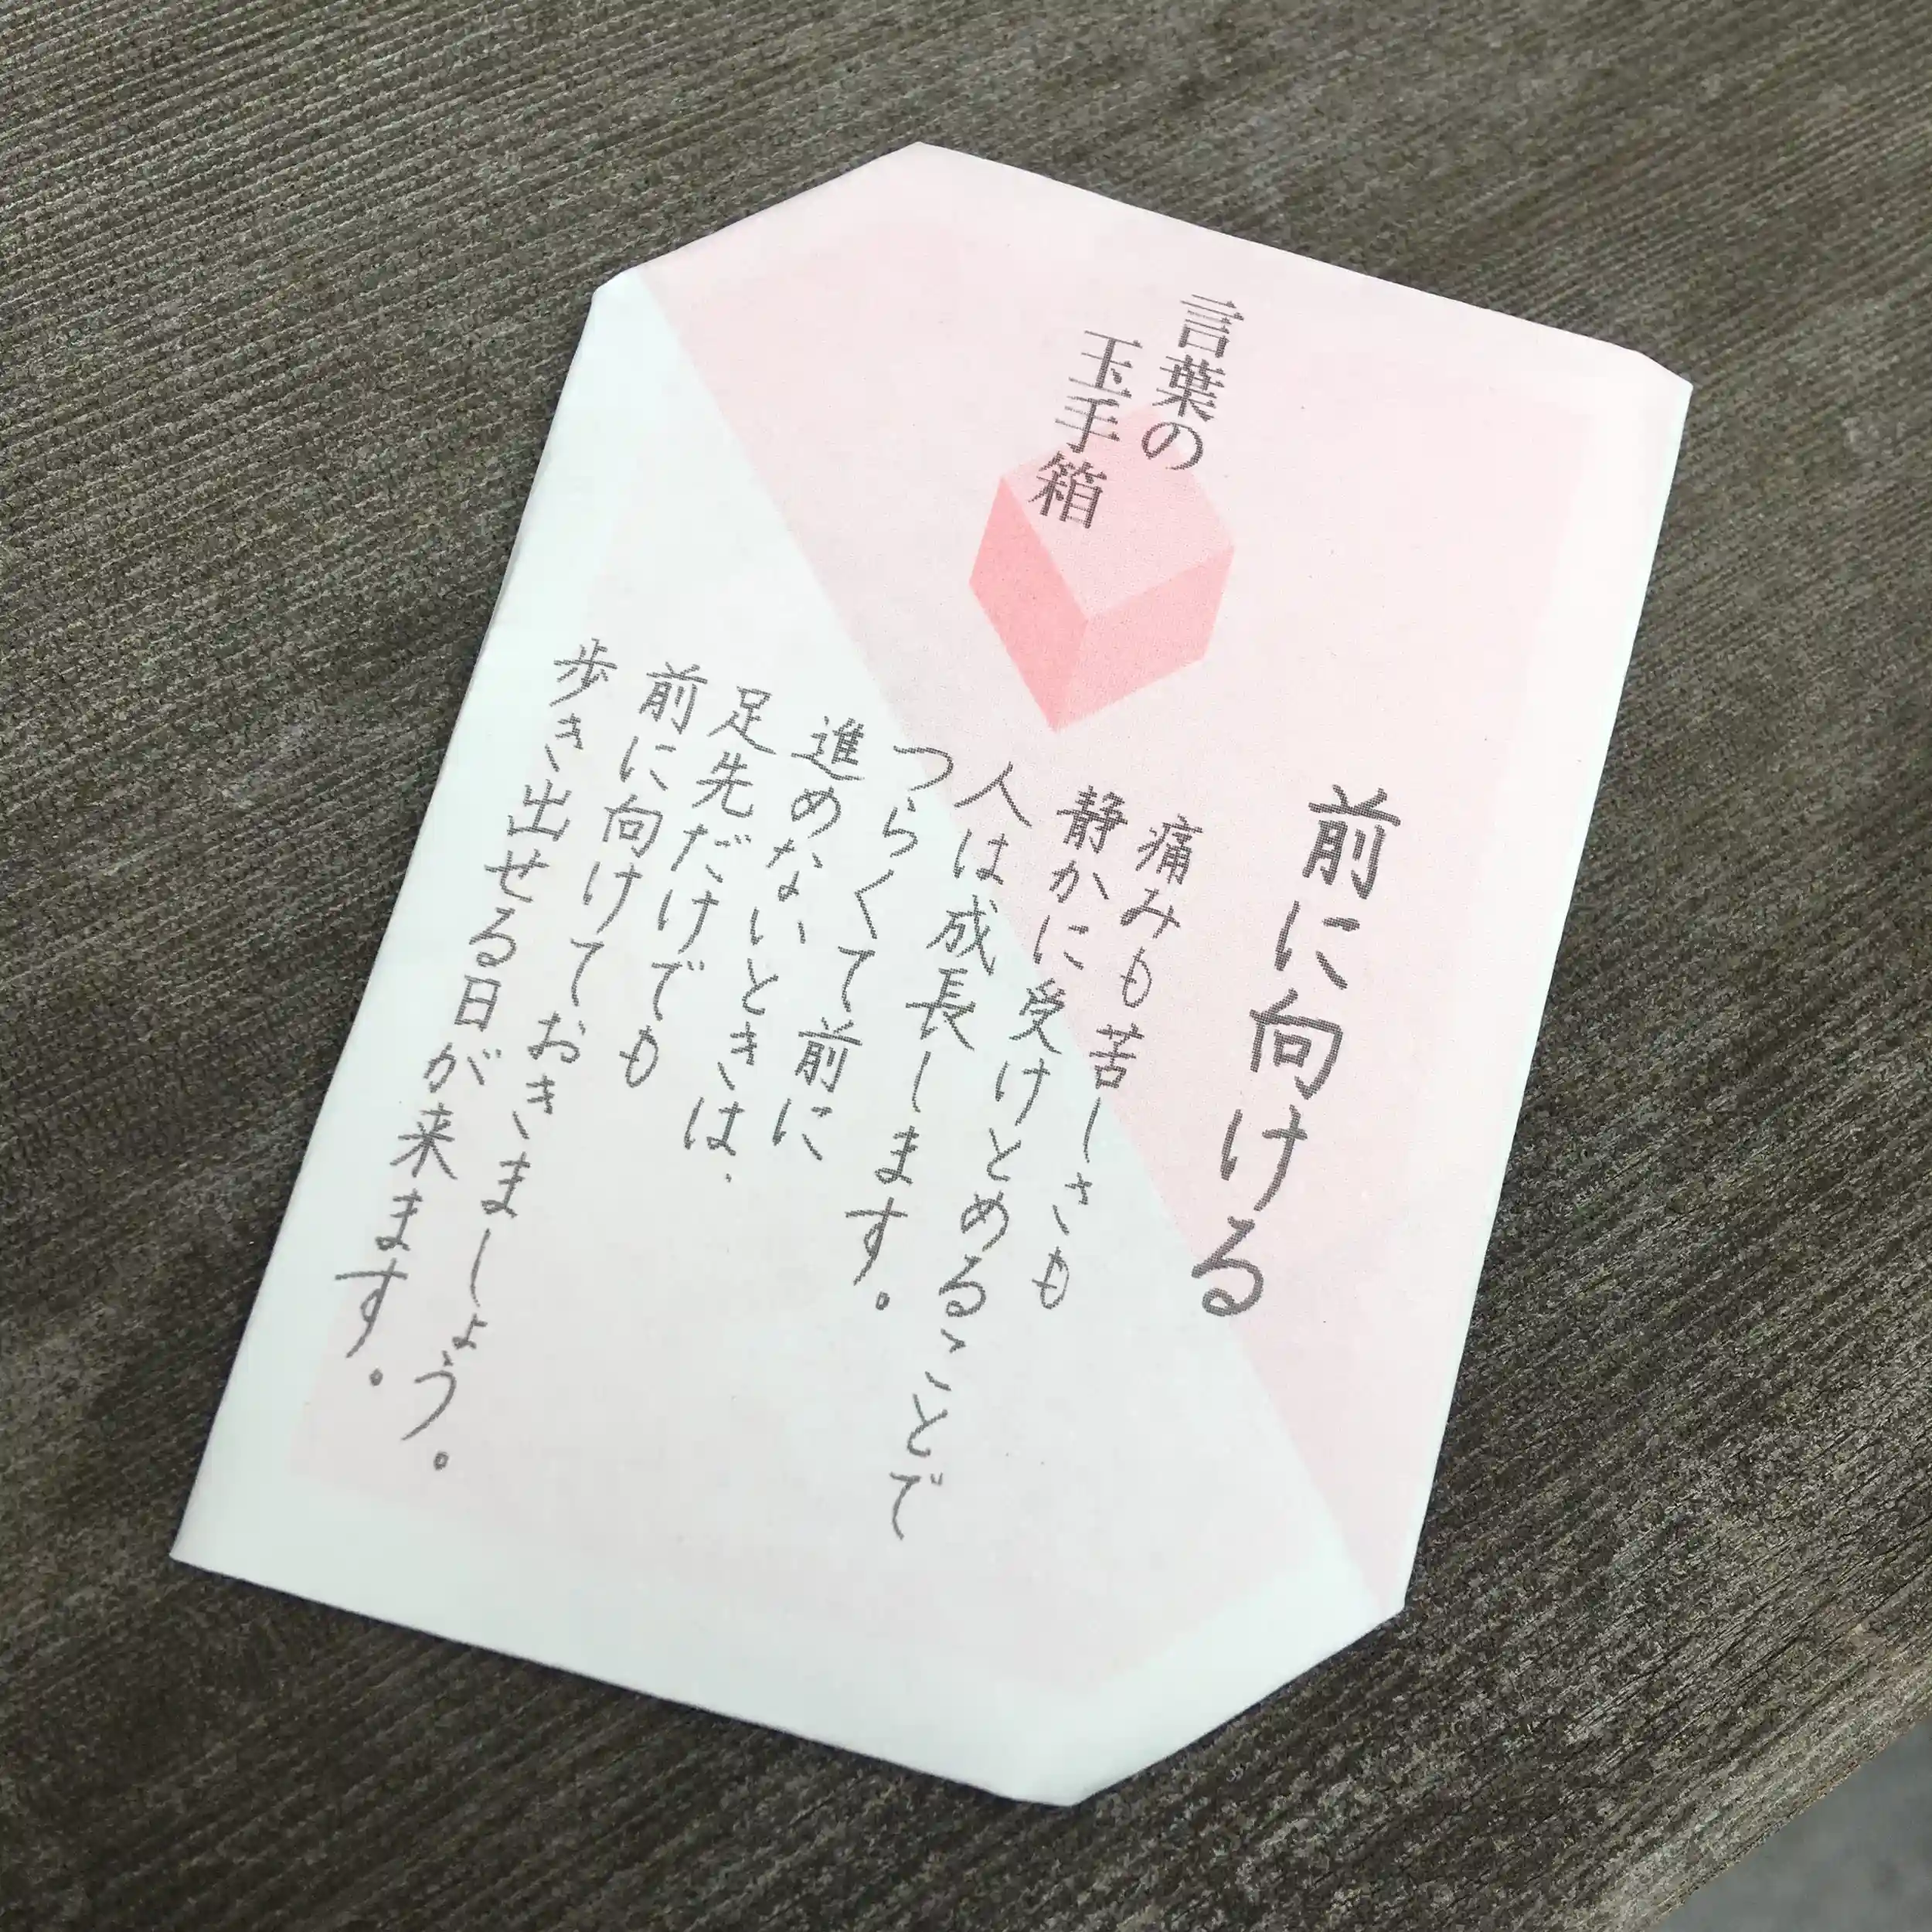 言葉の
玉手箱
前に向ける
痛みも苦しさも
静かに受けとめることで
人は成長します。
つらくて前に
進めないときは、
足先だけでも
前に向けておきましょう。
歩き出せる日が来ます。